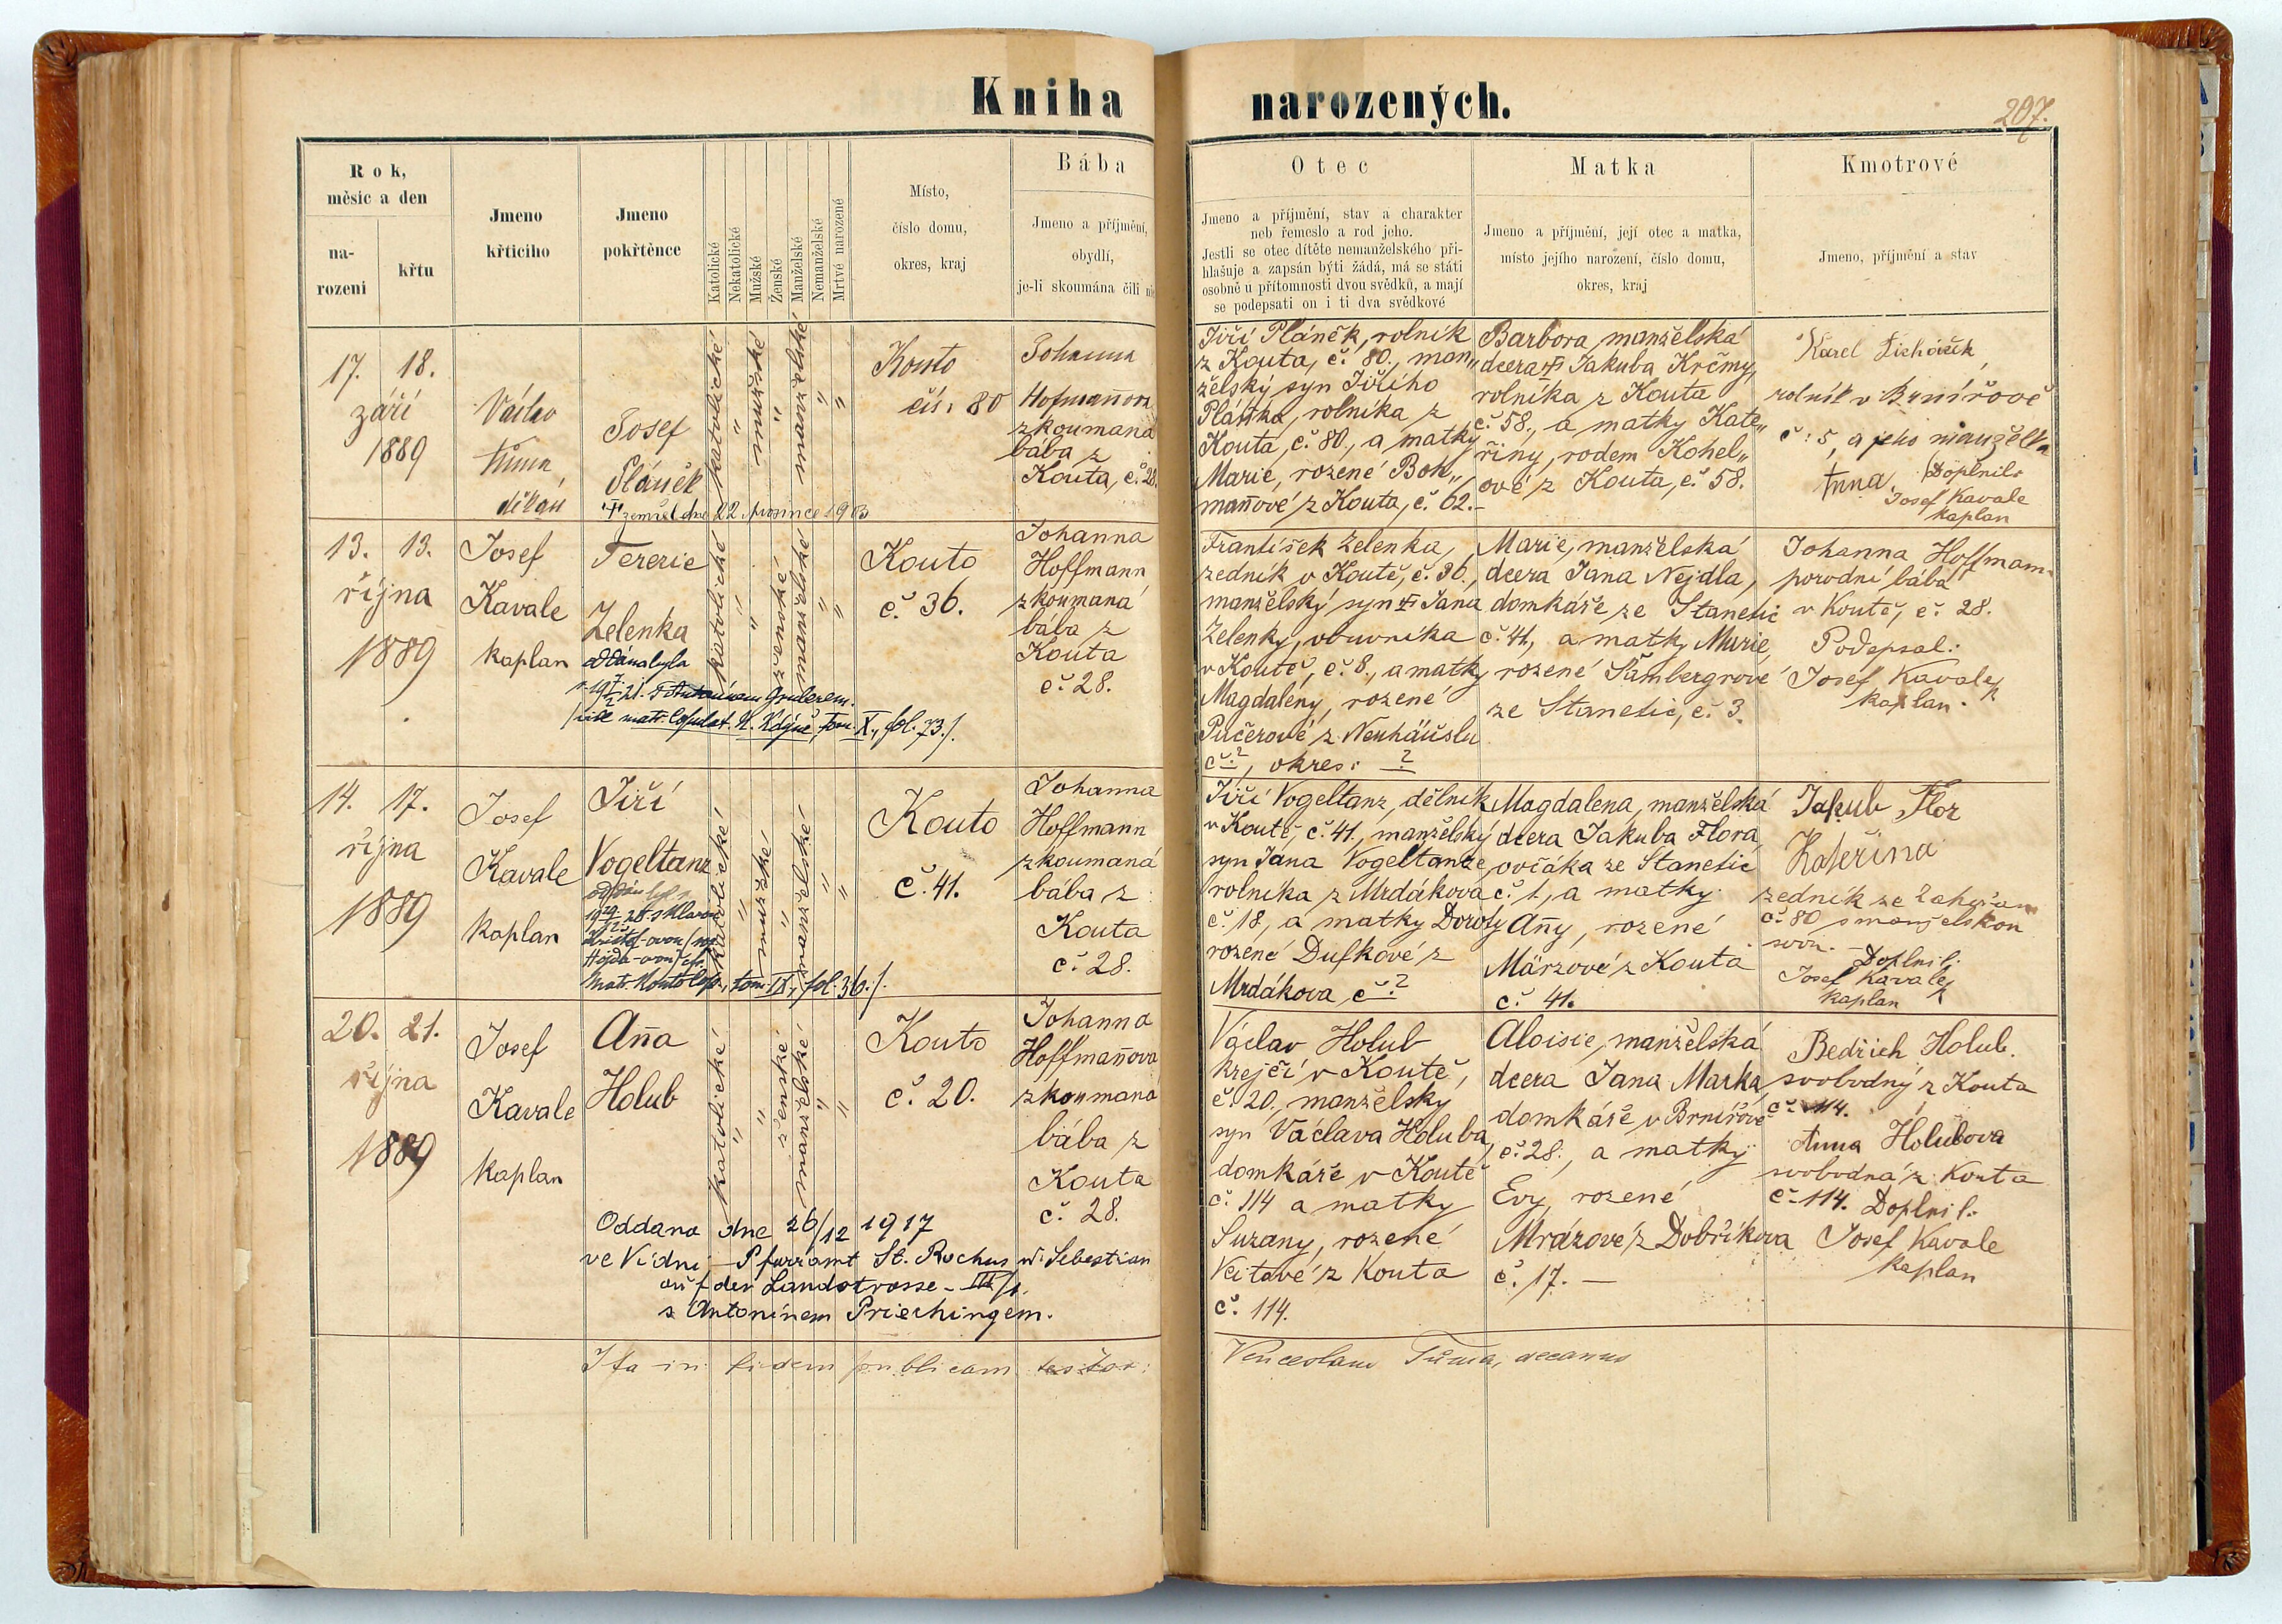 Kniha narozených.
207.
Rok,
měsíc a den
na-
rození
křtu
Jmeno
křtícího
Jmeno
pokřtěnce
Katolické
Nekatolické
Mužské
Ženské
Manželské
Nemanželské
Mrtvé narozené
Místo,
číslo domu,
okres, kraj
Bába
Jmeno a příjmění,
obydlí,
je-li skoumána čili
Otec
Jmeno a příjmění, stav a charakter
neb řemeslo a rod jeho.
Jestli se otec dítěte nemanželského při-
hlašuje a zapsán býti žádá, má se státi
osobně u přítomnosti dvou svědků, a mají
se podepsati on i ti dva svědkové
Matka
Jmeno a příjmění, její otec a matka,
místo jejího narození, číslo domu,
okres, kraj
Kmotrové
Jmeno, příjmění a stav
17. 18.
září
1889
Václav
Tůma
děkan
Josef
Pláněk
† zemřel dne 22. prosince 19
katolické
"
mužské
"
manželské
"
"
Kouto
čís: 80
Johanna
Hofmañova
zkoumaná
bába z
Kouta, č. 28.
Jiří Pláněk, rolník
z Kouta, č. 80., man„
želský syn Jiřího
Pláňka, rolníka z
Kouta, č. 80., a matky
Marie, rozené Boh„
mañové z Kouta, č. 62.–
Barbora, manželská
dcera † Jakuba Krčmy,
rolníka z Kouta
č. 58., a matky Kate„
řiny, rodem Kohel„
ové z Kouta, č. 58.
Karel
rolník v Brnířově
č: 5, a jeho manželka
Anna. Doplnil:
Josef Kavale
kaplan
13. 13.
října
1889
Josef
Kavale
kaplan
Terezie
Zelenka
oddána byla
katolické
"
"
ženské
manželské
"
"
Kouto
č. 36.
Johanna
Hoffmann
zkoumaná
bába z
Kouta
č. 28.
František Zelenka,
zedník v Koutě, č. 36.,
manželský syn † Jana
Zelenky, obuvníka
v Koutě, č. 8., a matky
Magdaleny, rozené
Pučerové z Neuhäuslu
č. ?, okres: ?
Marie, manželská
dcera Jana Nejdla,
domkáře ze Stanetic
č. 41, a matky Marie,
rozené Šambergrové
ze Stanetic, č. 3.
Johanna Hoffmann
porodní bába
v Koutě, č. 28.
Podepsal:
Josef Kavale
kaplan.
matr. Copulat. N. Kdyně, tom. X., fol. 73./.
14. 17.
října
1889
Josef
Kavale
kaplan
Jiří
Vogeltanz
matr. Kouto Cop., tom. IX, fol. 36./.
katolické
"
mužské
"
manželské
"
"
Kouto
č. 41.
Johanna
Hoffmann
zkoumaná
bába z
Kouta
č. 28.
Jiří Vogeltanz, dělník
v Koutě, č. 41., manželský
syn Jana Vogeltanze,
rolníka z Mrdákova
č. 18, a matky Doroty
rozené Dufkové z
Mrdákova, č. ?
Magdalena, manželská
dcera Jakuba Flora,
ovčáka ze Stanetic
č. 1, a matky
Añy, rozené
Märzové z Kouta
č. 41.
Jakub Flor
Kateřina
zedník ze Zahořan
č. 80 s manželkou
svou. –
Doplnil:
Josef Kavale
kaplan
20. 21.
října
1889
Josef
Kavale
kaplan
Aña
Holub
katolické
"
"
ženské
manželské
"
"
Kouto
č. 20.
Johanna
Hoffmañova
zkoumaná
bába z
Kouta
č. 28.
Václav Holub
krejčí v Koutě,
č. 20., manželský
syn Václava Holuba,
domkáře v Koutě
č. 114 a matky
Suzany, rozené
Veitové z Kouta
č. 114.
Aloisie, manželská
dcera Jana Marka,
domkáře v Brnířově
č. 28., a matky
Evy, rozené
Mrázové z Dobříkova
č. 17. —
Bedřich Holub.
svobodný z Kouta
č. 114.
Anna Holubova
svobodná z Kouta
č. 114. Doplnil:
Josef Kavale
kaplan
Oddana dne 26/12 1917
ve Vídni – Pfarramt St. Rochus u. Sebastian
auf der Landstrasse – III/1.
s Antonínem Priechingem.
Ita in fidem publicam testor:
Venceslaus Tůma, decanus